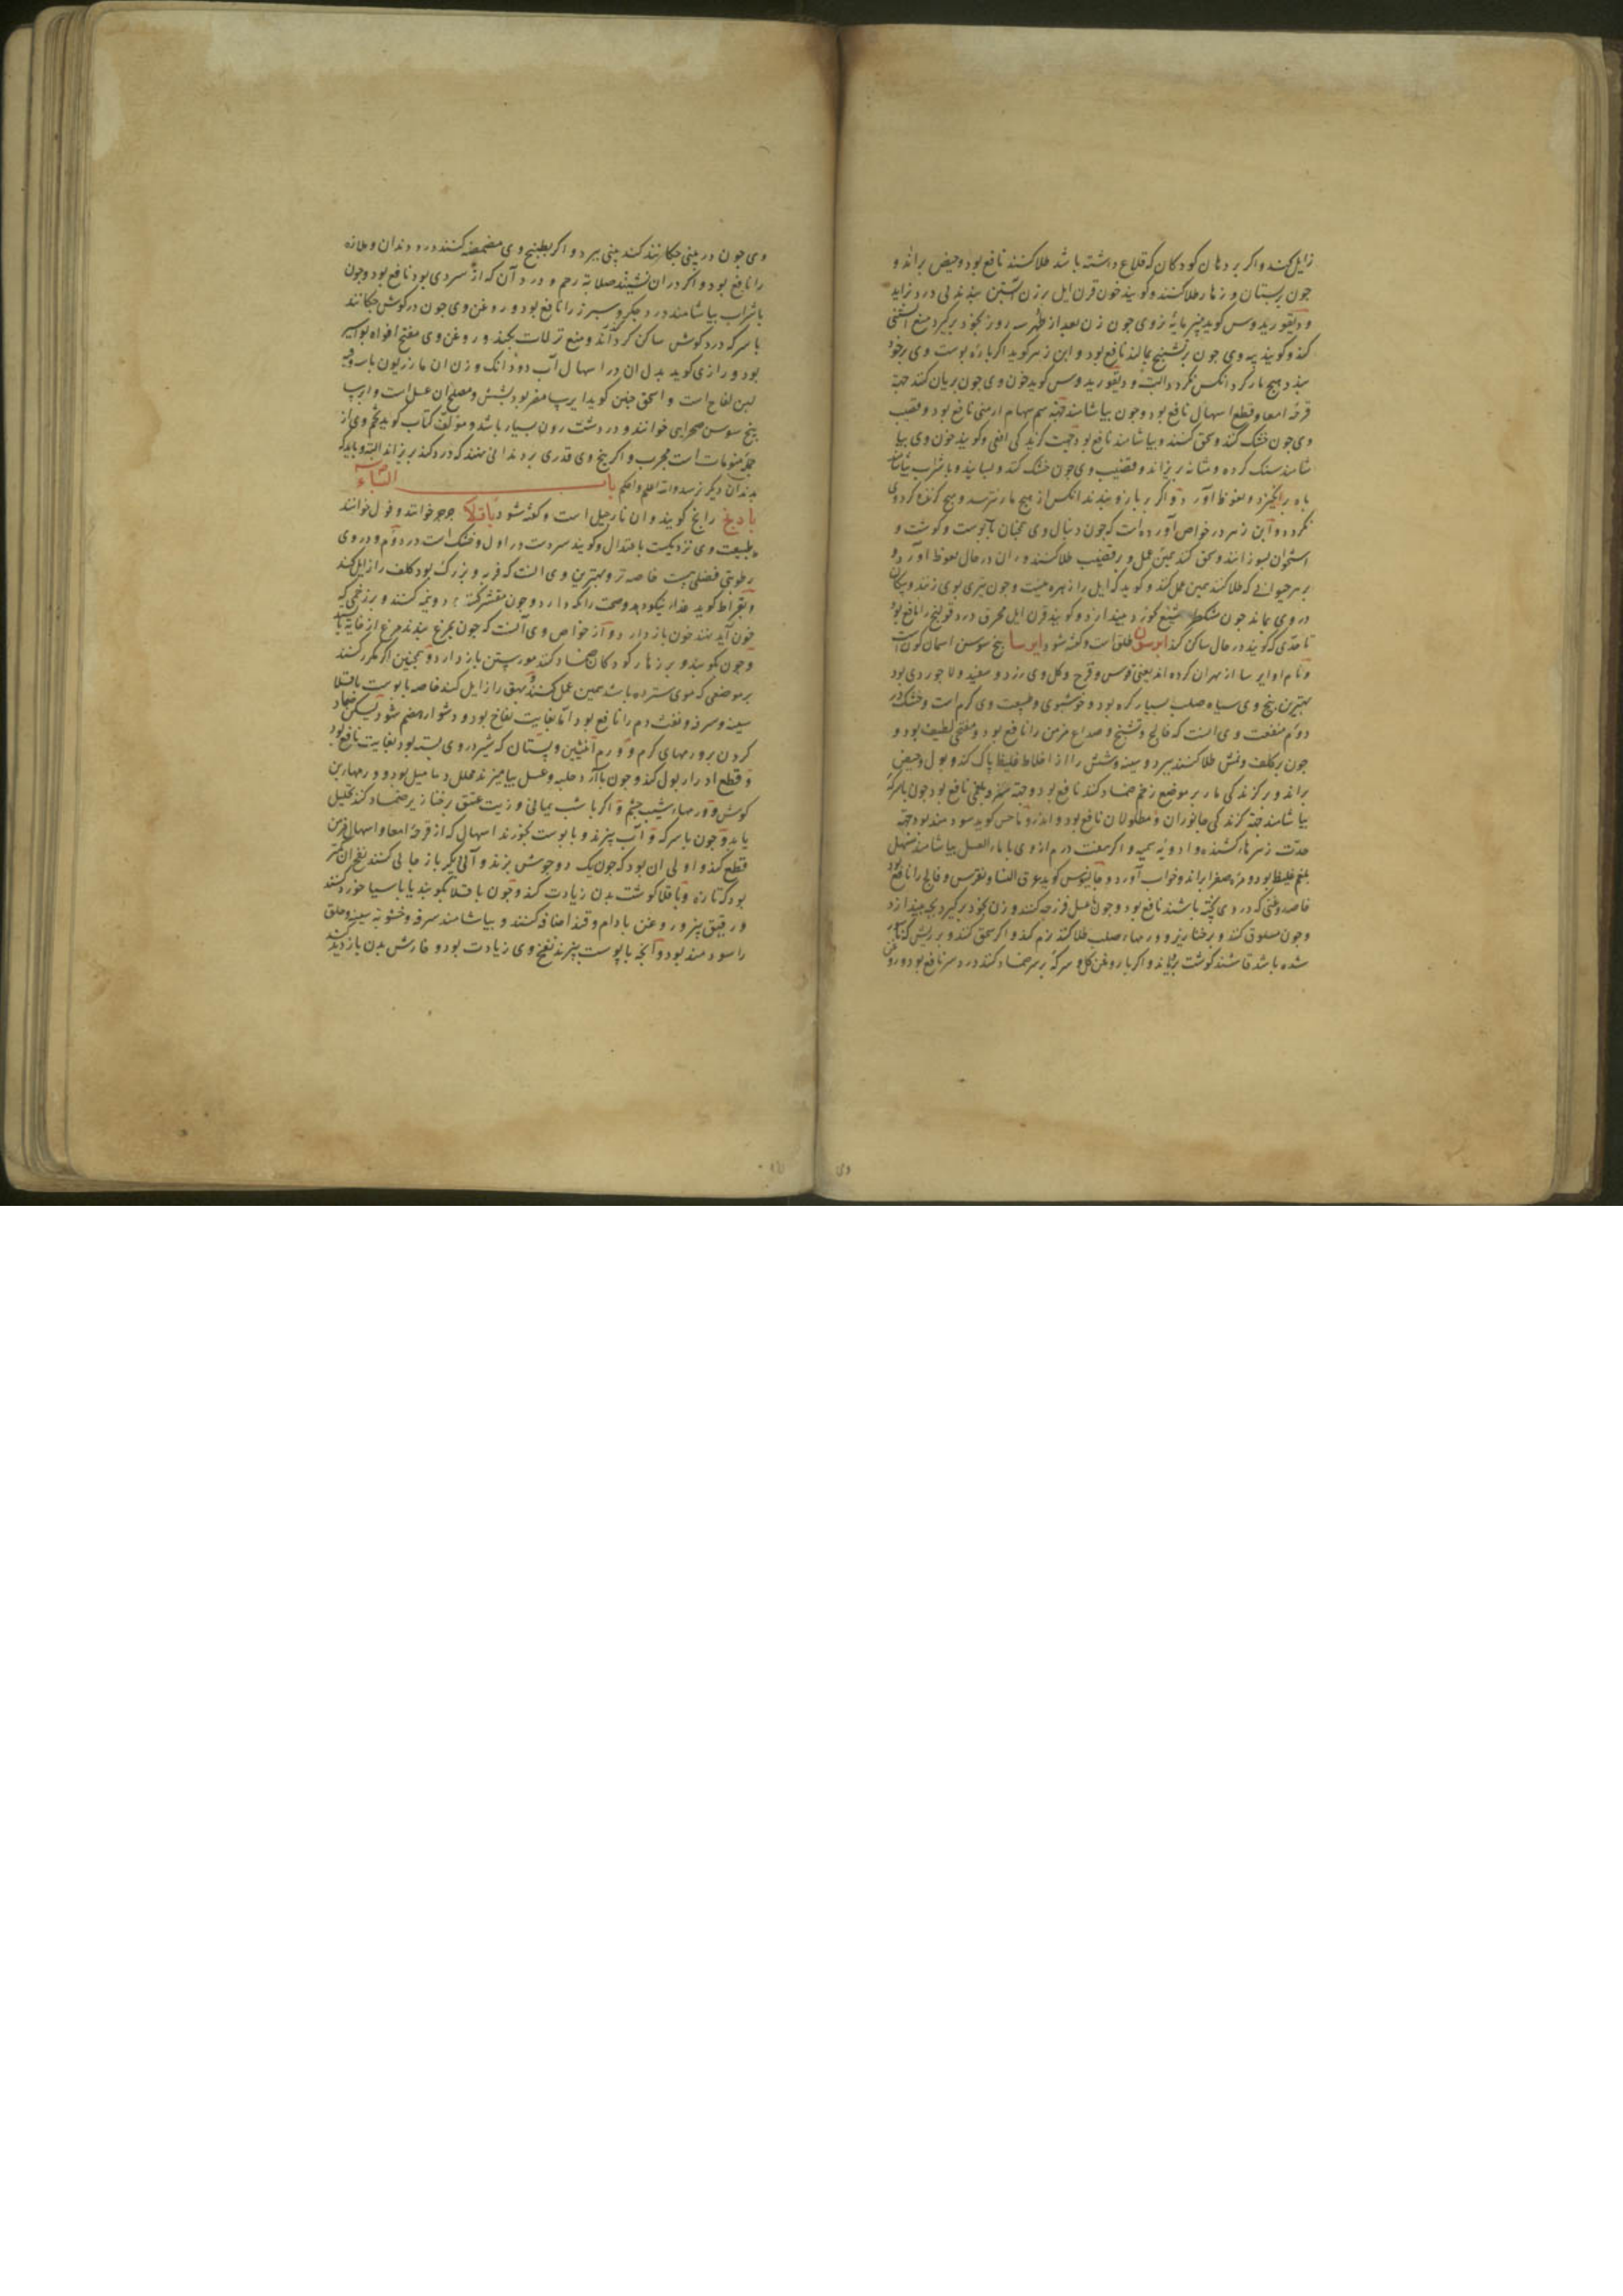 زایل کند و اکر بر دهان کودکان که قلاع داشته باشد طلا کنند نافع بود و حیض براند و
جون بر پستان و زهار طلا کنند و کویند خون قرن ایل بر زن آبستن بندند بی درد بزاید
و دیقوریدوس کوید پنیر مایهٔ وی جون زن بعد از طهر سه روز بخود برکیرد منع آبستنی
کند و کویند پیه وی جون بر تشنج بمالند نافع بود و ابن زهر کوید اکر پارهٔ پوست وی بر خود
بندد هیج مار کرد انکس نکردد البته و دیقوریدوس کوید خون وی جون بریان کنند جهة
قرحهٔ امعا و قطع اسهال نافع بود و جون بیاشامند جهة سم سهام ارمنی نافع بود و قضیب
وی جون خشک کنند و سحق کنند و بیاشامند نافع بود جهت کزیدکی افعی و کویند خون وی بیا
شامند سنک کرده و مثانه بریزاند و قضیب وی جون خشک کنند و بسایند و با شراب بیاشامند
باه برانکیزد و نعوظ آورد و اکر بر بازو بندند انکس از هیج مار نترسد و هیج کزنده کرد وی
نکردد و ابن زهر در خواص آورده است که جون دنبال وی همچنان با پوست و کوشت و
استخوان بسوزانند و سحق کنند همین عمل و بر قضیب طلا کنند در ان در حال نعوظ آورد و
بر هر حیوانی که طلا کنند همین عمل کند و کوید که ایل را زهره نیست و جون تیری بوی زنند و پیکان
در وی بماند جون مشکطرامشیع بخورد بیندازد و کویند قرن ایل محرق درد قولنج را نافع بود
تا حدی که کویند در حال ساکن کند ابرسق طلق است و کفته شود ایرسا بیخ سوسن اسمان کون است
و نام او ایرسا از بهر ان کرده اند یعنی قوس و قزح و کل وی زرد و سفید و لاجوردی بود
بهترین بیخ وی سیاه صلب بسیار کره بود و خوشبوی و طبیعت وی کرم است و خشک در
دوم منفعت وی انست که فالج و تشنج و صداع مزمن را نافع بود و مفتح لطیف بود و
جون بر کلف و نمش طلا کنند ببرد و سینه و شش را از اخلاط غلیظ پاک کند و بول و حیض
براند و بر کزندکی مار بر موضع زخم ضماد کنند نافع بود و جهة سرفه بلغمی نافع بود جون با سرکه
بیاشامند جهة کزندکی جانوران و مطحولان نافع بود و اندروماخس کوید سودمند بود جهة
حدت زهرهاء کشنده و ادویهٔ سمیه و اکر هفت درم از وی با ماء العسل بیاشامند مسهل
بلغم غلیظ بود و مره صفرا براند و خواب آورد و جالینوس کوید عرق النسا و نقرس و فالج را نافع بود
خاصه روغنی که در وی پخته باشند نافع بود و جون با عسل فرزجه کنند و زن بخود برکیرد بچه بیندازد
وجون مسلوق کنند و بر خنازیر و ورمهاء صلب طلا کنند نرم کند و اکر سحق کنند و بر ریش که ناسور
شده باشد فاشند کوشت برویاند و اکر با روغن کل و سرکه بر سر ضماد کنند درد سر نافع بود و روغن
وی
وی جون در بینی جکانند کند بینی ببرد و اکر بطبیخ وی مضمضه کنند درد دندان و ملازه
را نافع بود و اکر در ان نشینند صلابة رحم و درد آن که از سردی بود نافع بود و جون
با شراب بیاشامند درد جکر و سپرز را نافع بود و روغن وی جون در کوش جکانند
با سرکه درد کوش ساکن کرداند و منع نزلات بکند و روغن وی مفتح افواه بواسیر
بود و رازی کوید بدل ان در اسهال آب دو دانک وزن ان مازریون با سه وقیه
لبن لقاح است و اسحق جنین کوید ایرسا مضر بود بشش و مصلح ان عسل است و ایرسا
بیخ سوسن صحرایی خوانند و در دشت رون بسیار باشد و مؤلف کتاب کوید تخم وی از
جملهٔ منومات است مجرب و اکر بیخ وی قدری بر دندانی نهند که درد کند بریزاند البته و باید که
بدندان دیکر نرسد والله اعلم و احکم باب الباء
بادنج رانج کویند و ان نارجیل است و کفته شود باقلا جرجر خوانند و فول خوانند
طبیعت وی نزدیکست باعتدال و کویند سردست در اول و خشک است در دوم و در وی
رطوبتی فضلی هست خاصه تر و بهترین وی انست که فربه و بزرک بود کلف را زایل کند
و بقراط کوید غذاء نیکو دهد و صحت را نکه دارد و جون مقشر کنند و دو نیمه کنند و بر زخمی که
خون آید نهند خون باز دارد و از خواص وی آنست که جون بمرغ بدهند مرغ از خایه باز ایستد
و جون بکوبند و بر زهار کودکان ضماد کنند موی رستن باز دارد و همچنین اکر مکرر کنند
بر موضعی که موی سترده باشد همین عمل کند و بهق را زایل کند خاصه با پوست باقلا
سینه و سرفه و نفث دم را نافع بود اما بغایت نفاخ بود و دشوار هضم شود لیکن ضماد
کردن بر ورمهای کرم و ورم انثیین و پستان که شیر در وی بسته بود بغایت نافع بود
و قطع ادرار بول کند و جون با آرد حلبه و عسل بیامیزند محلل دمامیل بود و ورمهاء بن
کوش و ورمهاء شیب جشم و اکر با شب یمانی و زیت عتیق بر خنازیر ضماد کنند تحلیل
یابد و جون با سرکه و آب پزند و با پوست بخورند اسهال که از قرحهٔ امعا و اسهال مزمن
قطع کند و اولی ان بود که جون یک دو جوش بزند و آبی دیکر باز جای کنند نفخ ان کمتر
بود که تازه و باقلا کوشت بدن زیادت کند و جون باقلا بکوبند یا باسیا خورد کنند
و رقیق پزند و روغن بادام و قند اضافه کنند و بیاشامند سرفه و خشونة سینه و حلق
را سودمند بود و آنچه با پوست پزند نفخ وی زیادت بود و خارش بدن بازدید کند